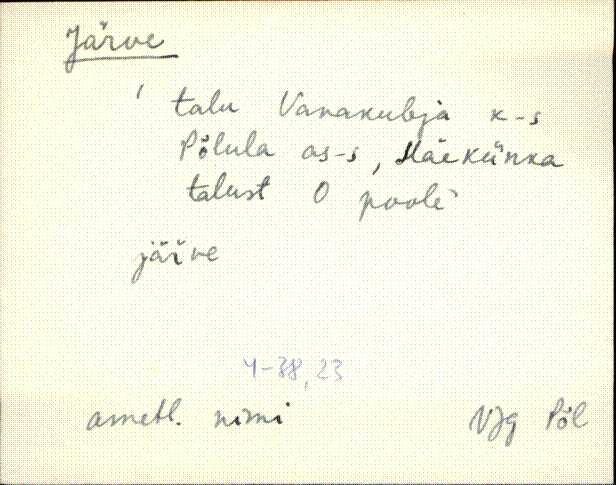 Järve
talu Vanakubja k-s
Põlula as-s, Mäekünka
talust O poole
järve
4-38,23
ametl. nimi
VJg Põl